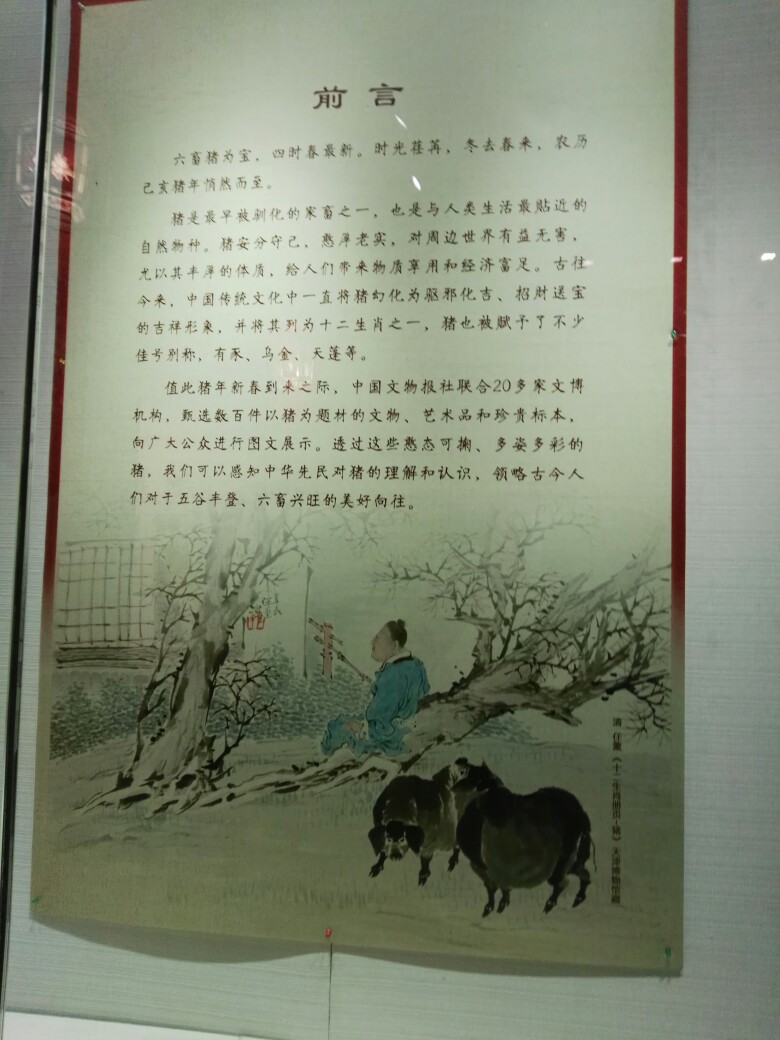 前言
六畜猪为宝,四时春最新。时光荏苒,冬去春来,农历
己亥猪年悄然而至。
猪是最早被驯化的家畜之一,也是与人类生活最贴近的
自然物种。猪安分守己,憨厚老实,对周边世界有益无害,
尤以其丰厚的体质,给人们带来物质享用和经济富足。古往
今来,中国传统文化中一直将猪幻化为驱邪化吉、招财送宝
的吉祥形象,并将其列为十二生肖之一,猪也被赋予了不少
佳号别称,有豕、乌金、天蓬等。
值此猪年新春到来之际,中国文物报社联合20多家文博
机构,甄选数百件以猪为题材的文物、艺术品和珍贵标本,
向广大公众进行图文展示。透过这些憨态可掬、多姿多彩的
猪,我们可以感知中华先民对猪的理解和认识,领略古今人
们对于五谷丰登、六畜兴旺的美好向往。
清 任薰《十二生肖册页-猪》天津博物馆藏